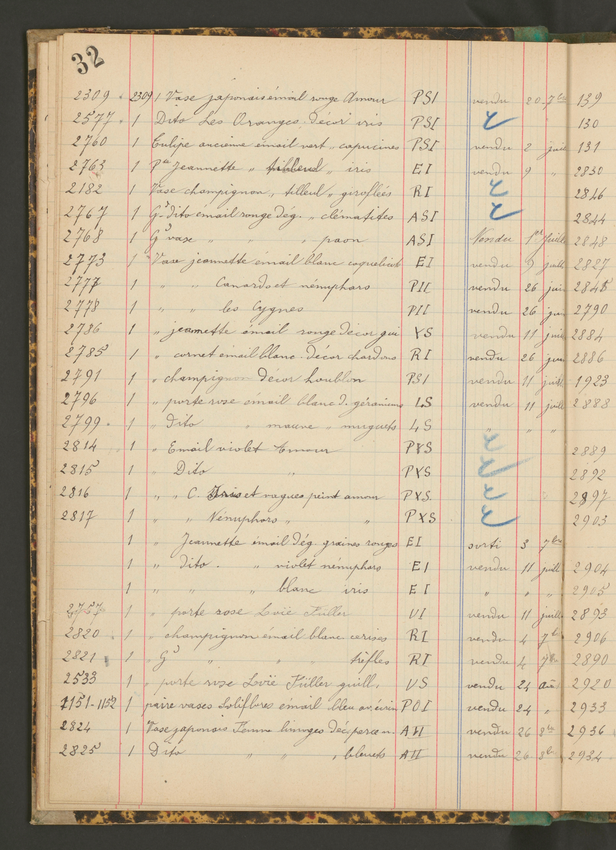 32
2309 " 2309 1 Vase japonais émail rouge Amour PSI vendu 20 7bre 139
2577 " 1 Dito Les Oranges décor iris PSI 130
2760 1 Tulipe ancienne émail vert " capucines PSI vendu 2 juil 131
2763 1 Pte Jeannette " " iris EI vendu 9 " 2830
2182 1 Vase champignon, tilleul " giroflées RI 2846
2767 1 Gd Dito émail rouge dég. " clématites ASI 2844
2768 1 Gd vase " " " paon ASI Vendu 1er Juil 2848
2773 1 Vase jeannette émail blanc coquelicot EI vendu 9 juil 2827
2777 1 " " Canards et nénuphars PII vendu 26 juin 2845
2778 1 " " les Cygnes PII vendu 26 jui 2790
2786 1 " jeannette émail rouge décor gui YS vendu 11 juil 2884
2785 1 " cornet émail blanc décor chardons RI vendu 26 jui 2886
2791 1 " champignon décor houblon PSI vendu 11 juil 1923
2796 1 " porte rose émail blanc d. géranium LS vendu 11 juil 2888
2799 " 1 " Dito " mauve " muguets LS " " "
2814 1 " Email violet Amour PYS 2889
2815 1 " Dito " PYS 2892
2816 1 " " C. Iris et vagues peint amour PYS 2897
2817 1 " " Nénuphars " " PYS 2903
1 " Jeannette émail dég. graines rouges EI sorti 3 7bre
1 " dito " " violet nénuphars EI vendu 11 juil 2904
1 " " " blanc iris EI " " " 2905
2757 1 " porte rose Loïe Fuller VI vendu 11 juil 2893
2820 1 " champignon émail blanc cerises RI vendu 4 7b 2906
2821 1 " Gd " " " trèfles RI vendu 4 7bre 2890
2533 1 " porte rose Loïe Füller guill. VS vendu 24 aoû 2920
1151-1152 1 paire vases Soliflores émail bleu POI vendu 24 " 2933
2824 1 Vase japonais limoges déc. AII vendu 26 8bre 2936
2825 1 Dito " " " bleuets AII vendu 26 8b 2934